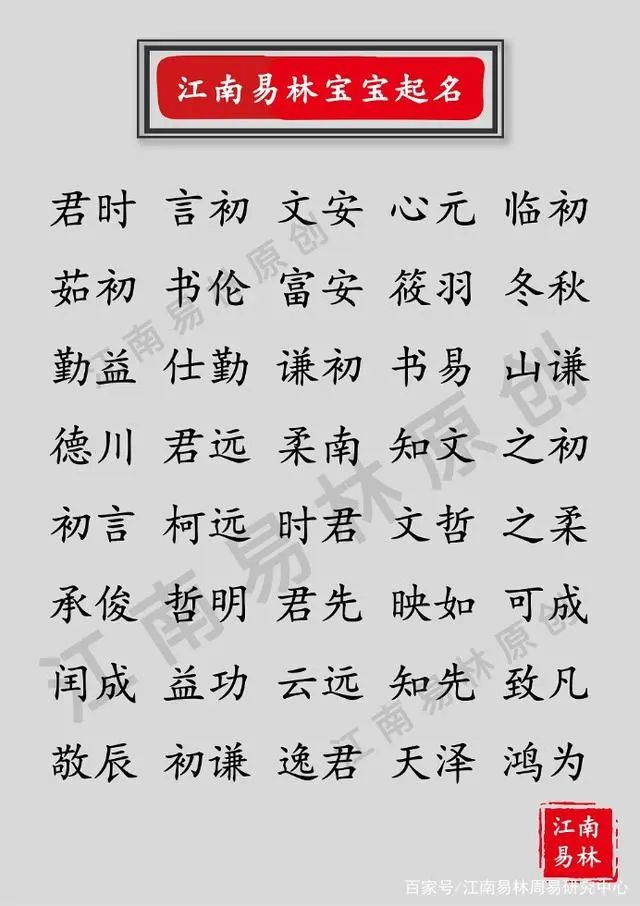 江南易林宝宝起名
君时 言初 文安 心元 临初
茹初 书伦 富安 筱羽 冬秋
勤益 仕勤 谦初 书易 山谦
德川 君远 柔南 知文 之初
初言 柯远 时君 文哲 之柔
承俊 哲明 君先 映如 可成
闰成 益功 云远 知先 致凡
敬辰 初谦 逸君 天泽 鸿为
江南易林原创
江南易林原创
江南易林原创
江南
易林
百家号/江南易林周易研究中心